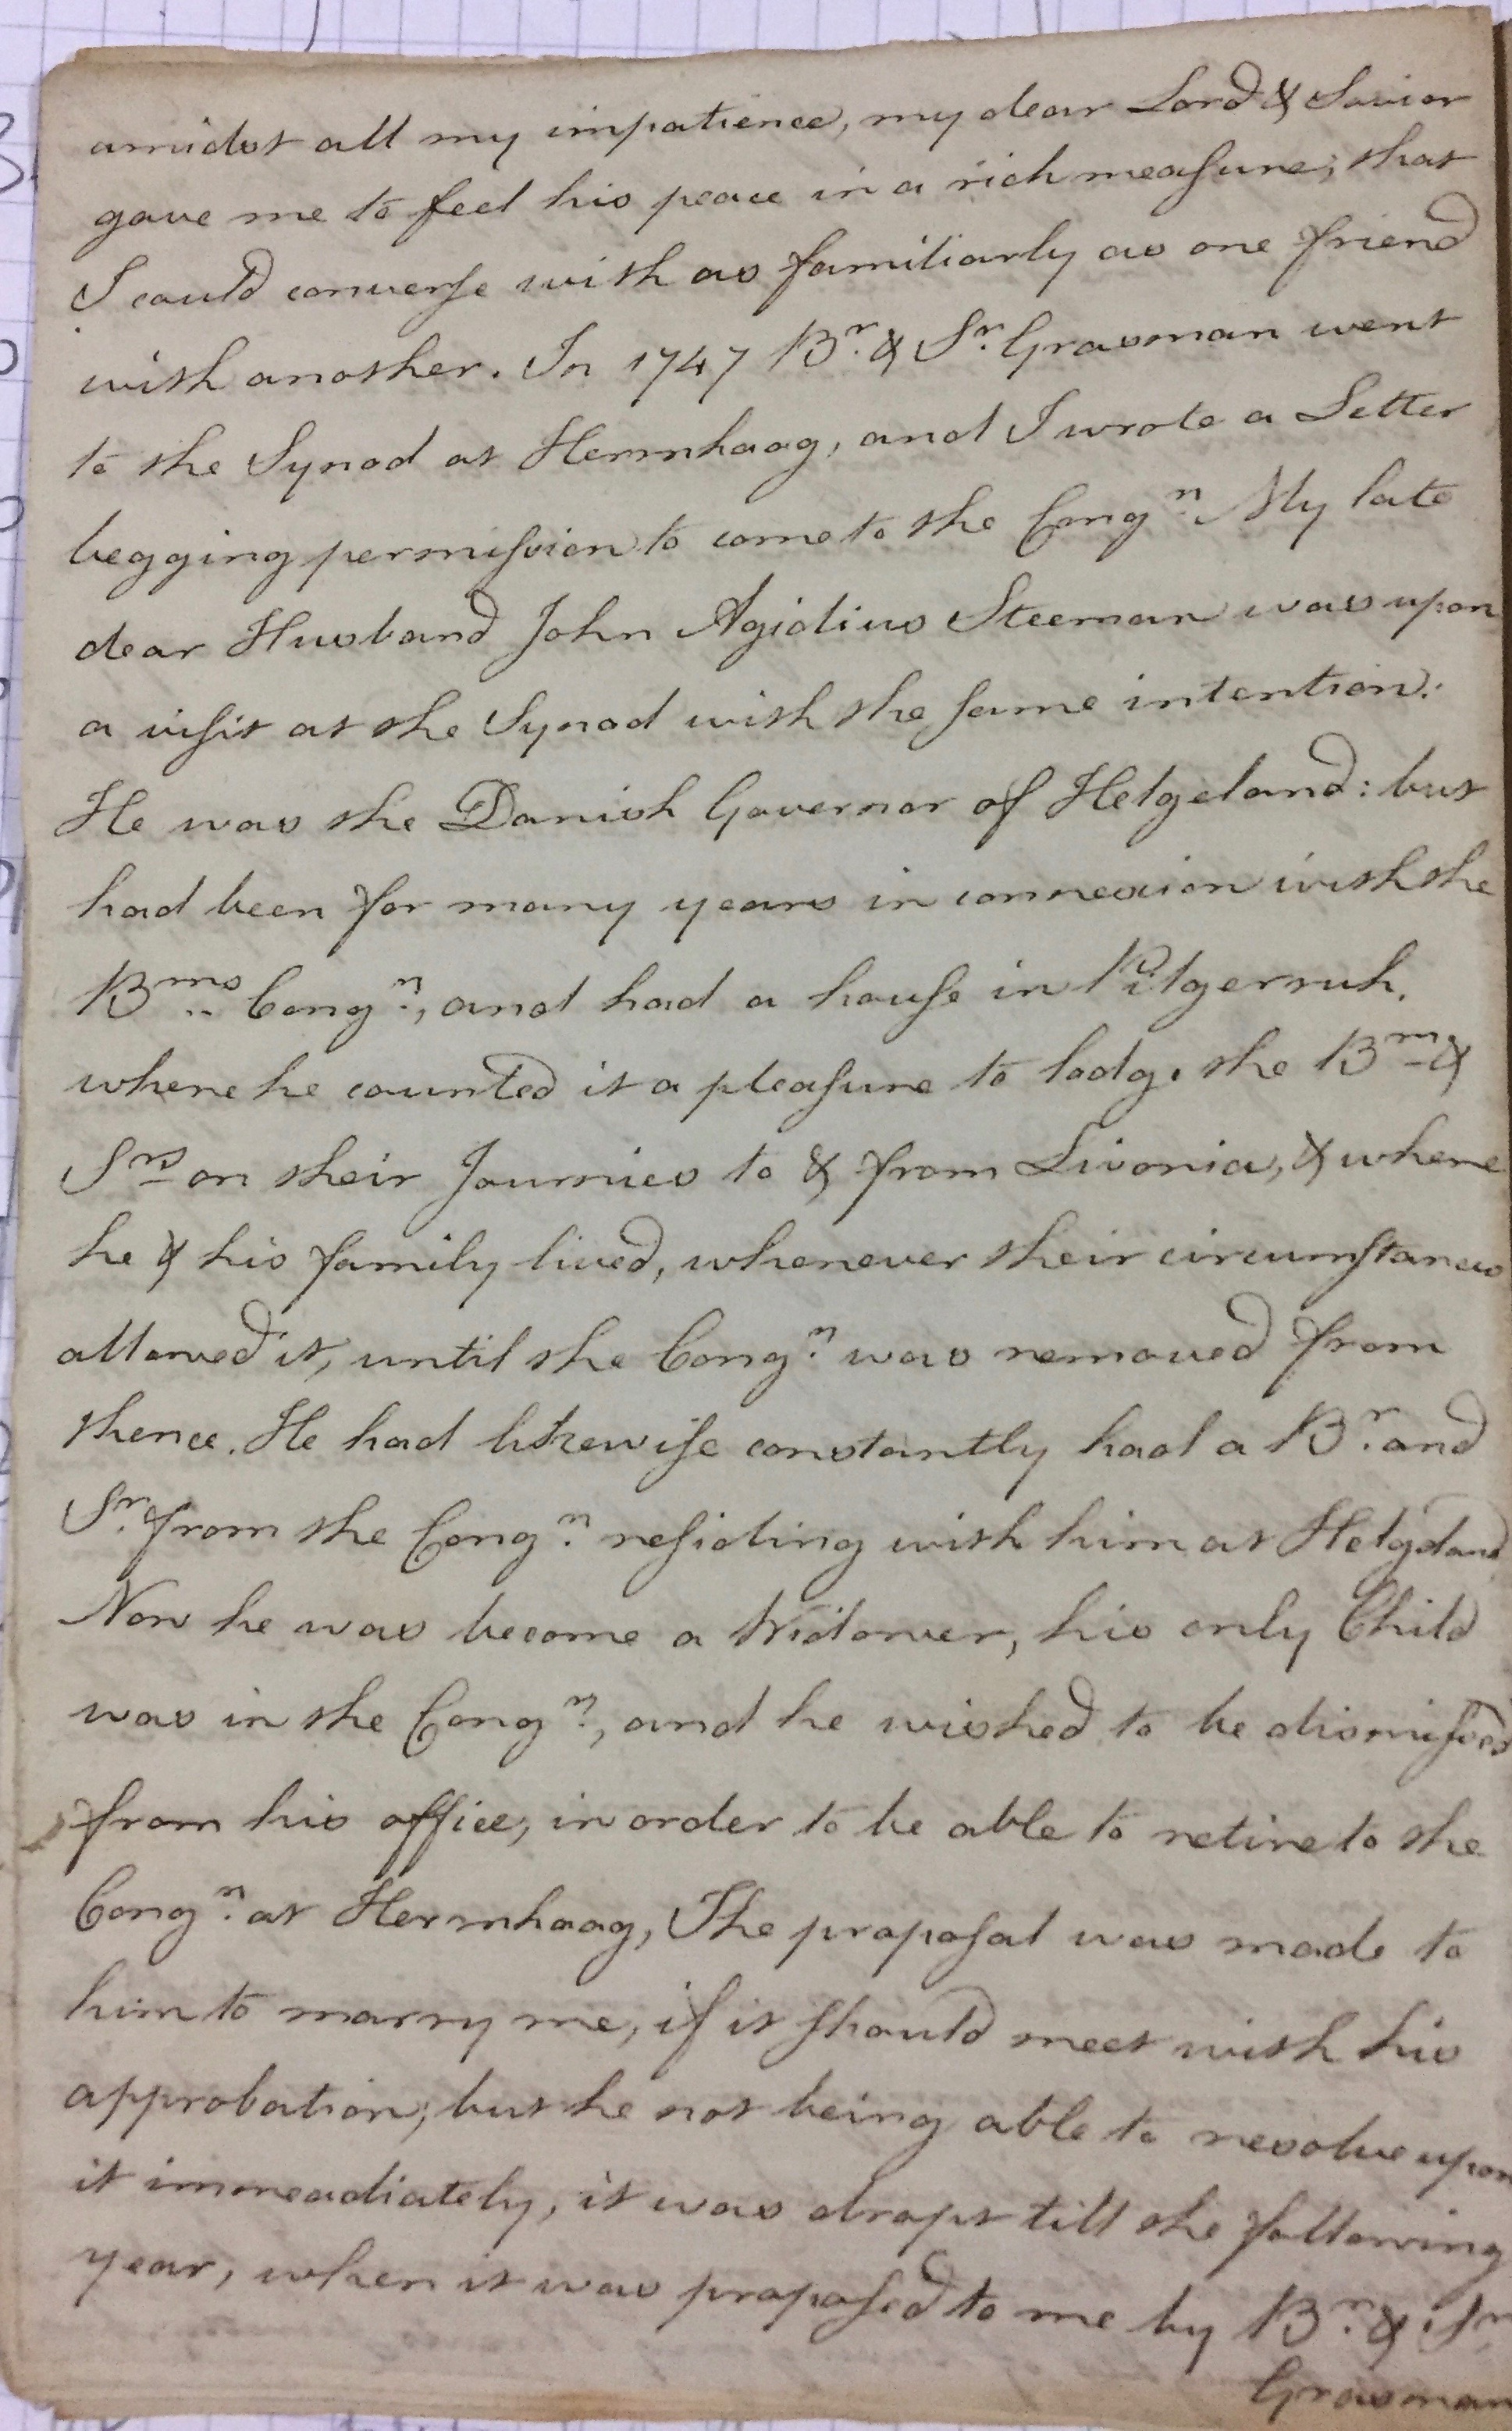 amidst all my impatience, my dear Lord & Savior
gave me to feel his peace in a rich measure, that
I could converse with as familiarly as one friend
with another. In 1747 Br. & Sr. Grasman went
to the Synod at Herrnhaag, and I wrote a Letter
begging permission to come to the Congn. My late
dear Husband John Agidius Steeman was upon
a visit at the Synod with the same intention.
He was the Danish Governor of Helgeland: but
had been for many years in connexion with the
Brns. Congn., and had a house in Pilgerruh.
where he counted it a pleasure to lodge the Brn &
Srs on their Journies to & from Livonia, & where
he & his family lived, whenever their circumstances
allowed it, until the Congn. was removed from
thence. He had likewise constantly had a Br. and
Sr. from the Congn. residing with him at Helgeland
Now he was become a Widower, his only Child
was in the Congn., and he wished to be dismissed
from his office, in order to be able to retire to the
Congn. at Herrnhaag, The proposal was made to
him to marry me, if it should meet with his
approbation; but he not being able to resolve upon
it immeadiately, it was dropt till the following
year, when it was proposed to me by Br. & Sr
Grasman